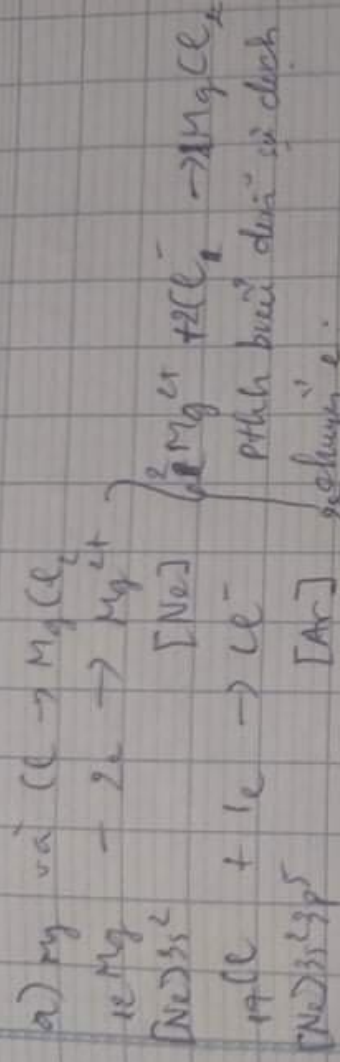 a) Mg và Cl → MgCl₂
₁₂Mg - 2e → Mg²⁺
[Ne]3s² [Ne]
₁₇Cl + 1e → Cl⁻
[Ne]3s²3p⁵ [Ar]
Mg²⁺ + 2Cl⁻ → MgCl₂
pthh biểu diễn sự dịch
chuyển e.